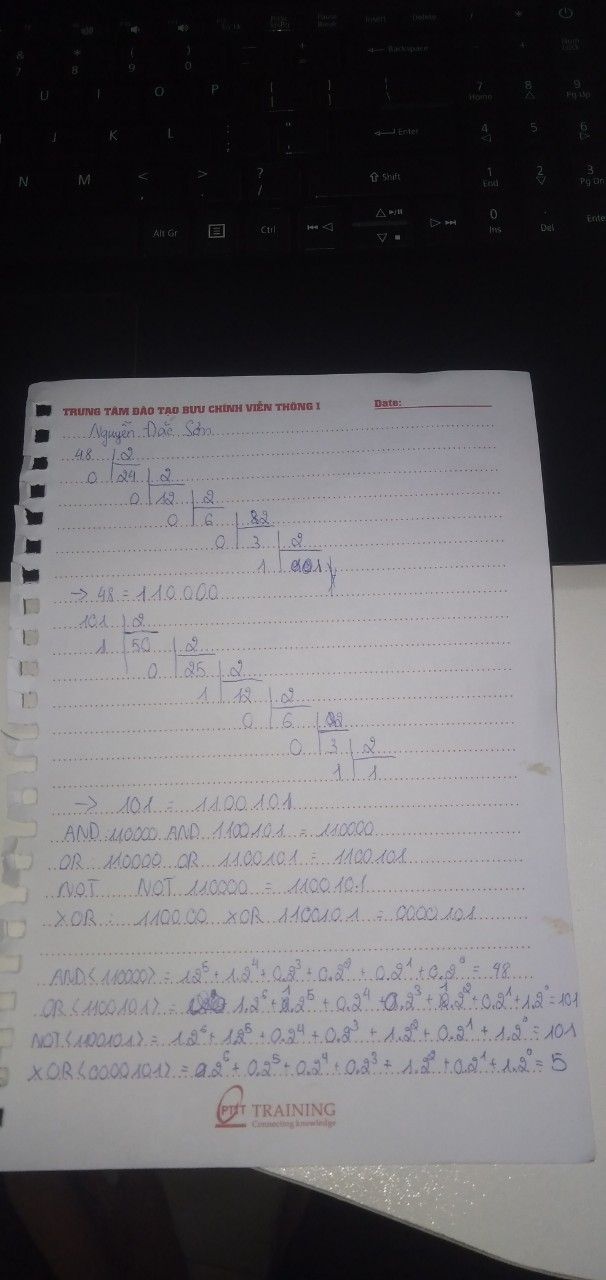 & * ( ) - + ← Backspace
7 8 9 0
U I O P [ ] \ 7 Home 8 9 Pg Up
J K L : ; " ' ← Enter 4 5 6
N M < , > . ? / ⇧ Shift 1 End 2 3 Pg Dn
Alt Gr Ctrl 0 Ins . Del Enter
TRUNG TÂM ĐÀO TẠO BƯU CHÍNH VIỄN THÔNG I Date:
Nguyễn Đắc Sơn
48 2
0 24 2
0 12 2
0 6 2
0 3 2
1
→ 48 = 110000
101 2
1 50 2
0 25 2
1 12 2
0 6 2
0 3 2
1 1
→ 101 = 1100101
AND: 110000 AND 1100101 = 110000
OR: 110000 OR 1100101 = 1100101
NOT NOT 110000 = 1100101
XOR: 110000 XOR 1100101 = 0000101
AND<110000> = 1.2⁵ + 1.2⁴ + 0.2³ + 0.2² + 0.2¹ + 0.2⁰ = 48
OR<1100101> = 1.2⁶ + 1.2⁵ + 0.2⁴ + 0.2³ + 1.2² + 0.2¹ + 1.2⁰ = 101
NOT<1100101> = 1.2⁶ + 1.2⁵ + 0.2⁴ + 0.2³ + 1.2² + 0.2¹ + 1.2⁰ = 101
XOR<0000101> = 0.2⁶ + 0.2⁵ + 0.2⁴ + 0.2³ + 1.2² + 0.2¹ + 1.2⁰ = 5
PTIT TRAINING
Connecting knowledge